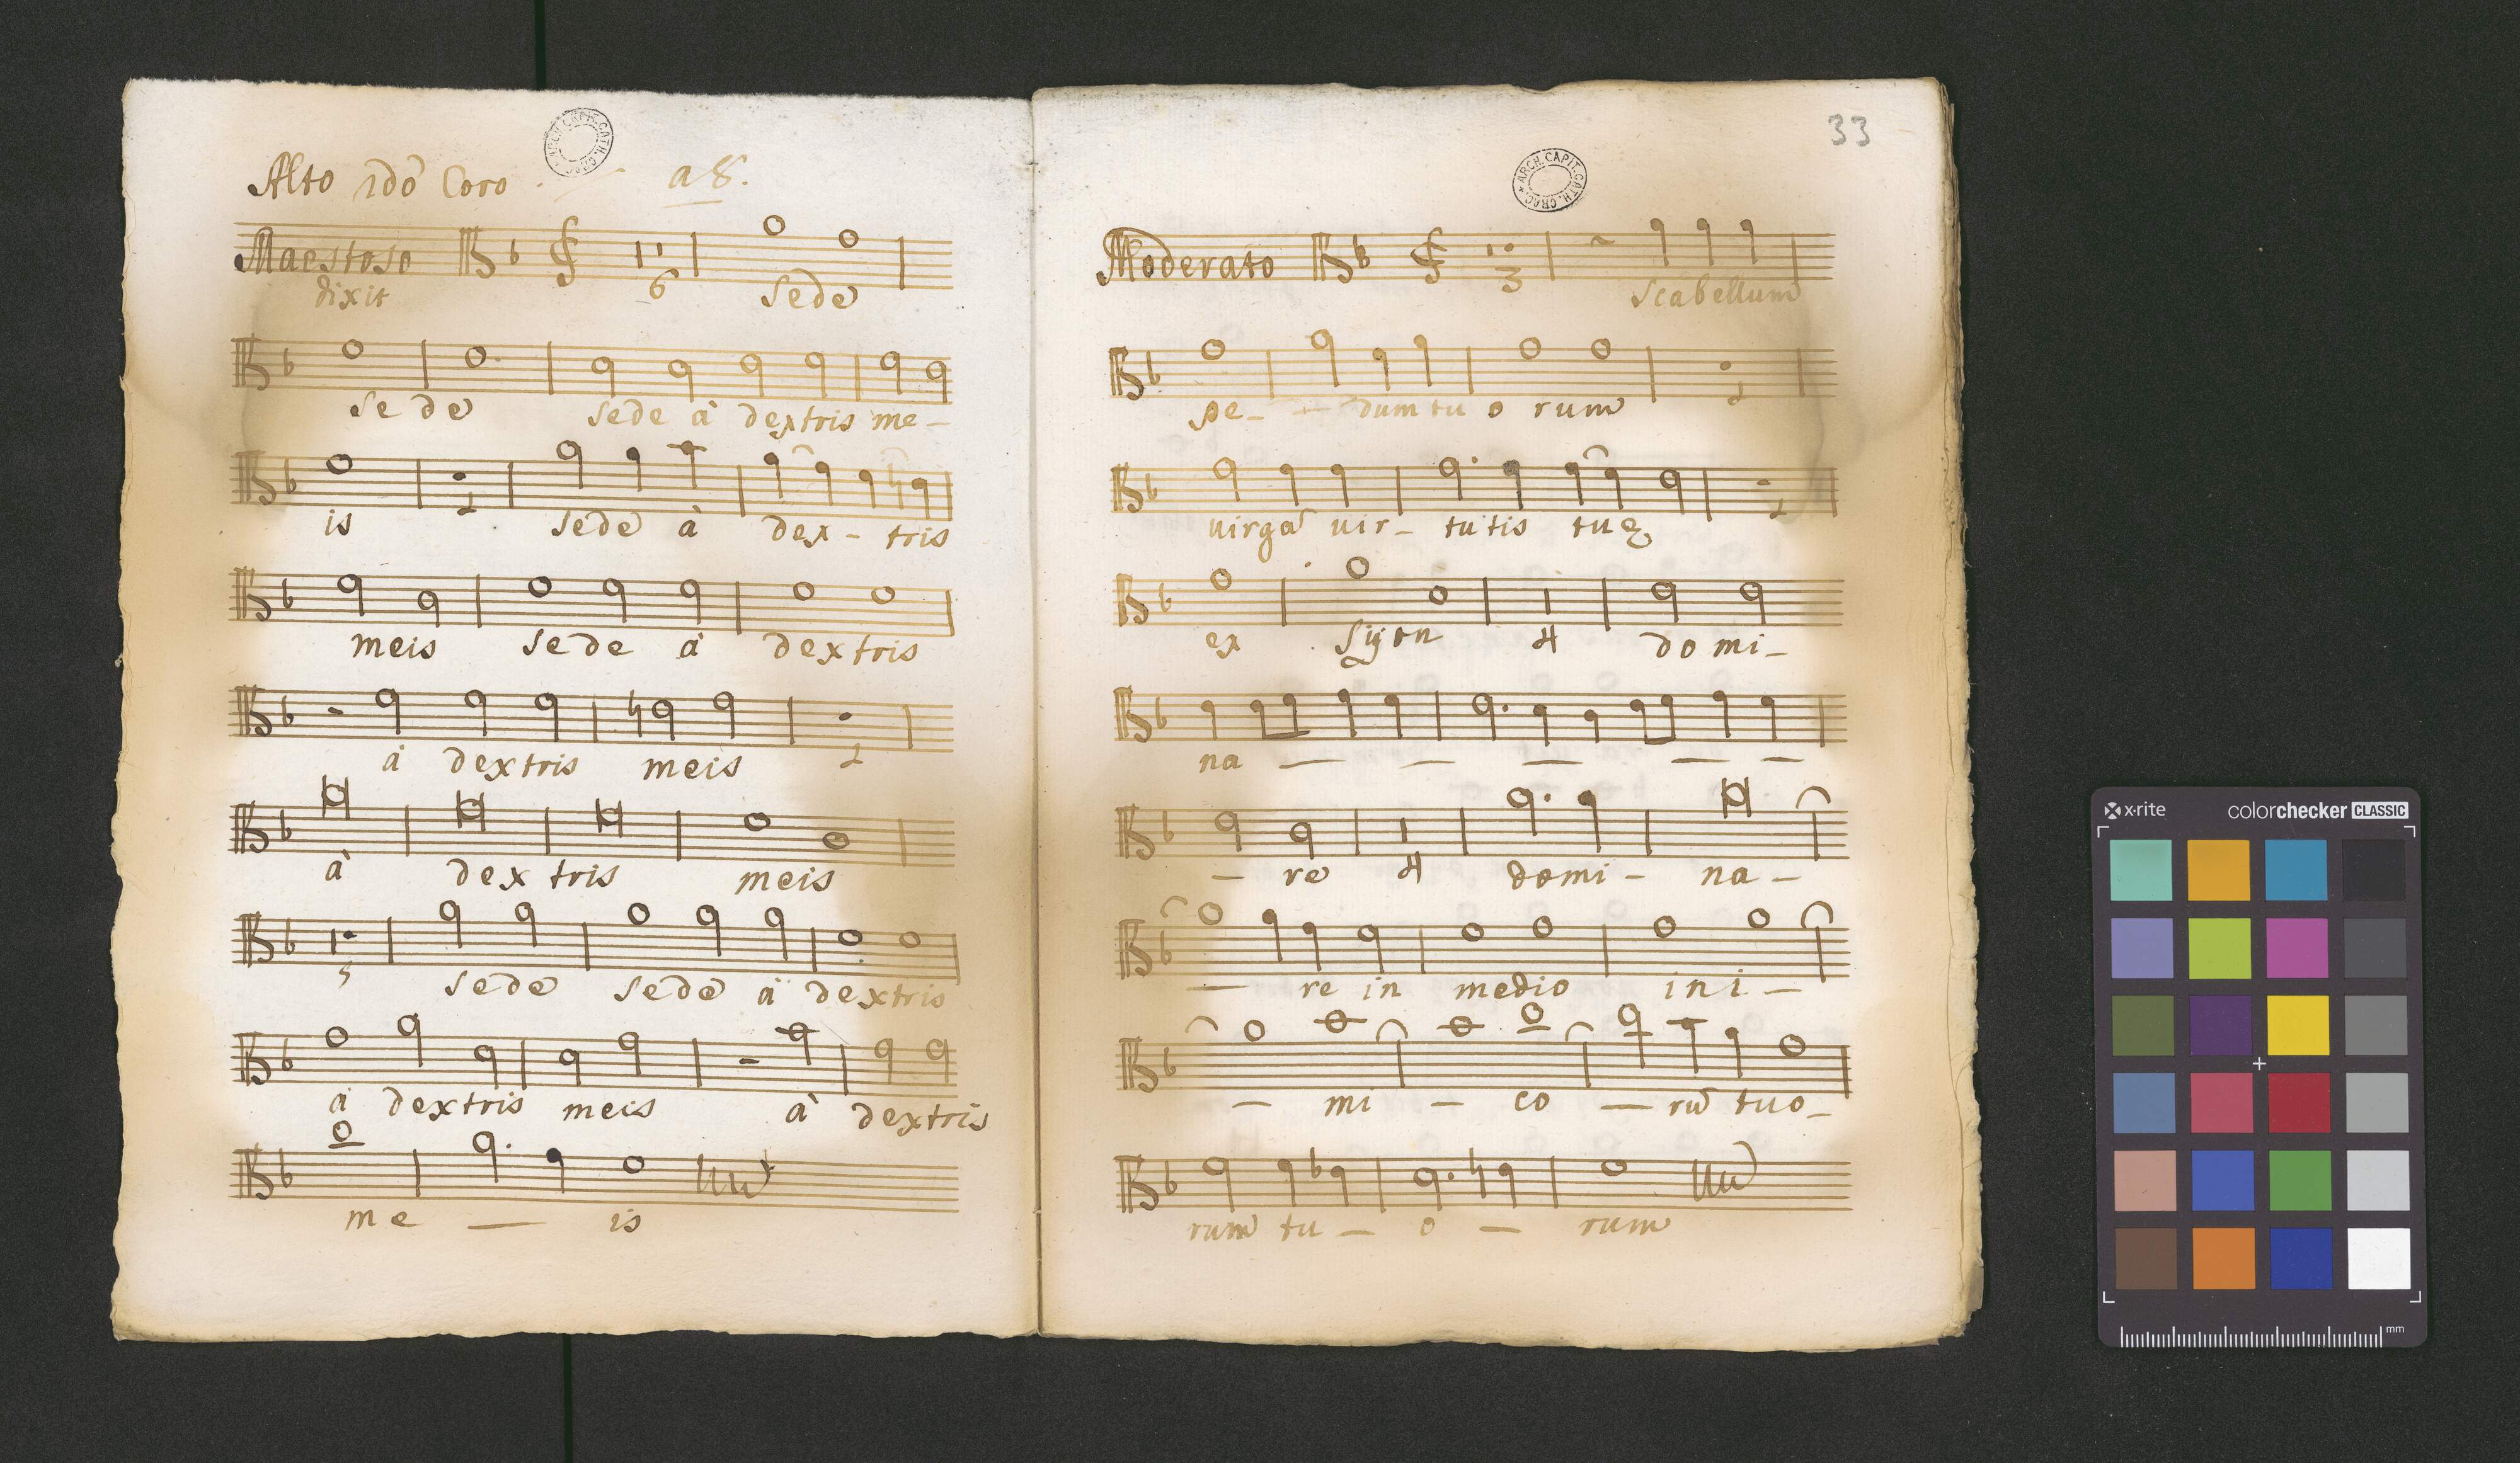 Alto 2do Coro a 8.
ARCH. CAPIT. CATH. CRAC.
Maestoso
6
dixit Sede
se de sede à dextris me-
1
is sede à dex - tris
meis se de à dextris
1
à dextris meis
à dex tris meis
5
sede sede à dextris
à dextris meis à dextris
me — is
33
ARCH. CAPIT. CATH. CRAC.
Moderato
3
Scabellum
pe- - dum tu o rum
1
uirga uir- tutis tuę
ex Syon 4 do mi-
na — — — — —
- re 4 domi - na -
— re in medio ini -
- mi - co — rū tuo-
rum tu - o - rum